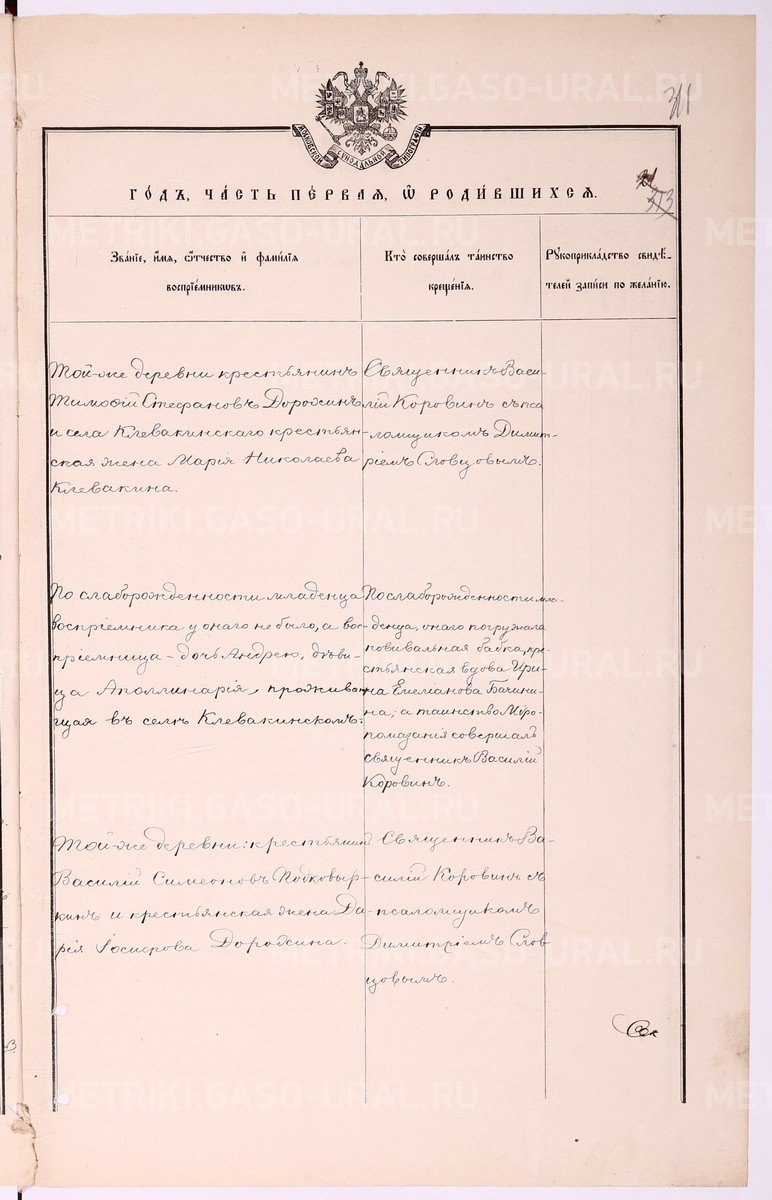 311
МОСКОВСКОЙ СѴНОДАЛЬНОЙ ТИПОГРАФІИ
313
ГО́ДЪ, ЧА́СТЬ ПЕ́РВАЯ, Ѿ РОДИ́ВШИХСѦ.
Зва́нїе, и҆́мѧ, ѻ҆́тчество и҆ фами́лїѧ
воспрїе́мникѡвъ.
Кто̀ соверша́лъ та́инство
креще́нїѧ.
Рꙋкоприкла́дство свидѣ́-
телей за́писи по жела́нїю.
Той-же деревни крестьянинъ
Тимоѳій Стефановъ Дорохинъ
и села Клевакинскаго крестьян-
ская жена Марія Николаева
Клевакина.
Священникъ Васи-
лій Коровинъ съ пса
ломщикомъ Димит-
ріемъ Словцовымъ.
По слаборожденности младенца
воспріемника у онаго не было, а вос-
пріемница - дочь Андрею, дѣви-
ца Аполлинарія, прожива-
ющая въ селѣ Клевакинскомъ.
По слаборожденности мла-
денца, онаго погружала
повивальная бабка, кре-
стьянская вдова Ири-
на Емеліанова Бачини-
на; а таинство Мѵро-
помазанія совершалъ
священникъ Василій
Коровинъ.
Той-же деревни: крестьянинъ
Василій Симеоновъ Подковыр-
кинъ и крестьянская жена Да-
рія Іосифова Дорохина.
Священникъ Ва-
силій Коровинъ съ
псаломщикомъ
Димитріемъ Слов
цовымъ.
METRIKI.GASO-URAL.RU